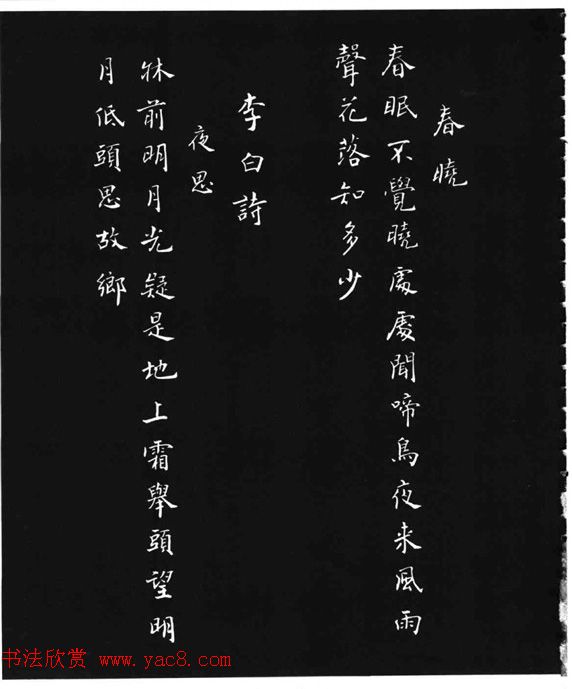 春曉
春眠不覺曉處處聞啼鳥夜来風雨
聲花落知多少
李白詩
夜思
牀前明月光疑是地上霜舉頭望明
月低頭思故鄉
书法欣赏 www.yac8.com